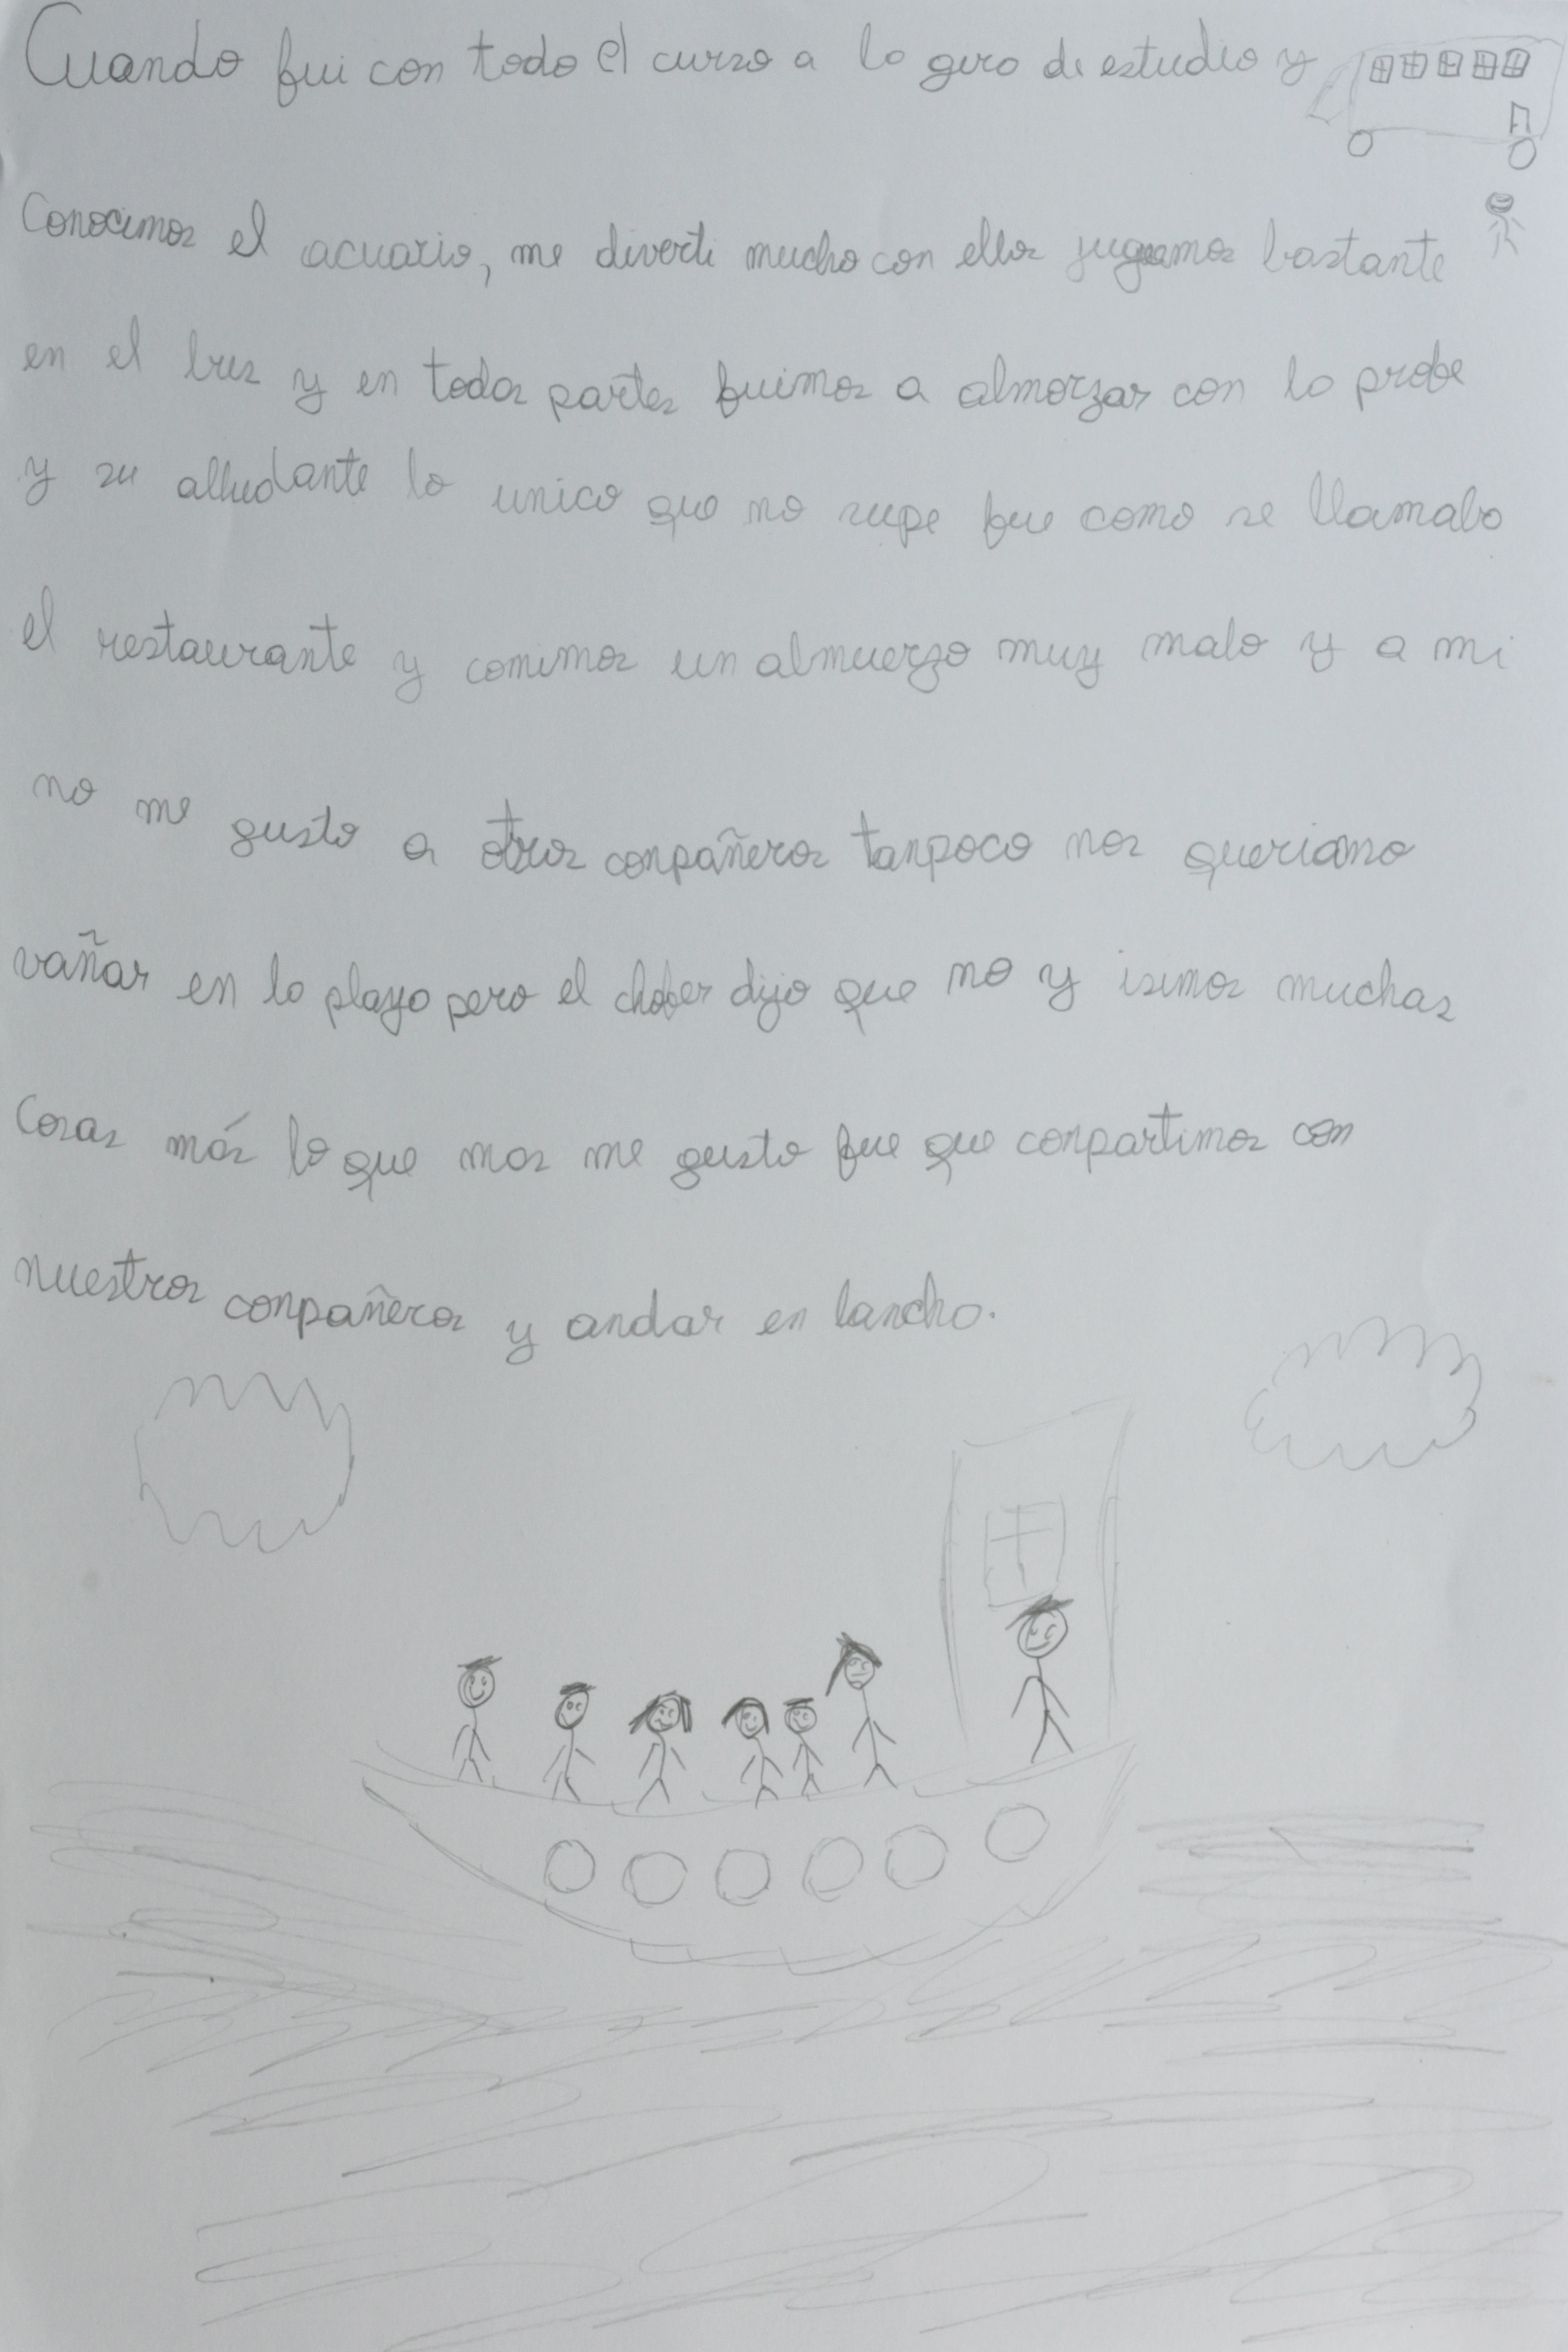 Cuando fui con todo el curso a la gira de estudio y
Conocimos el acuario, me diverti mucho con ellos jugamos bastante
en el bus y en todas partes fuimos a almorzar con la profe
y su alludante lo unico que no supe fue como se llamaba
el restaurante y comimos un almuerzo muy malo y a mi
no me gusto a otros conpañeros tanpoco nos queriamo
vañar en la playa pero el chofer dijo que no y isimos muchas
Cosas más lo que mas me gusto fue que conpartimos con
nuestros conpañeros y andar en lancha.